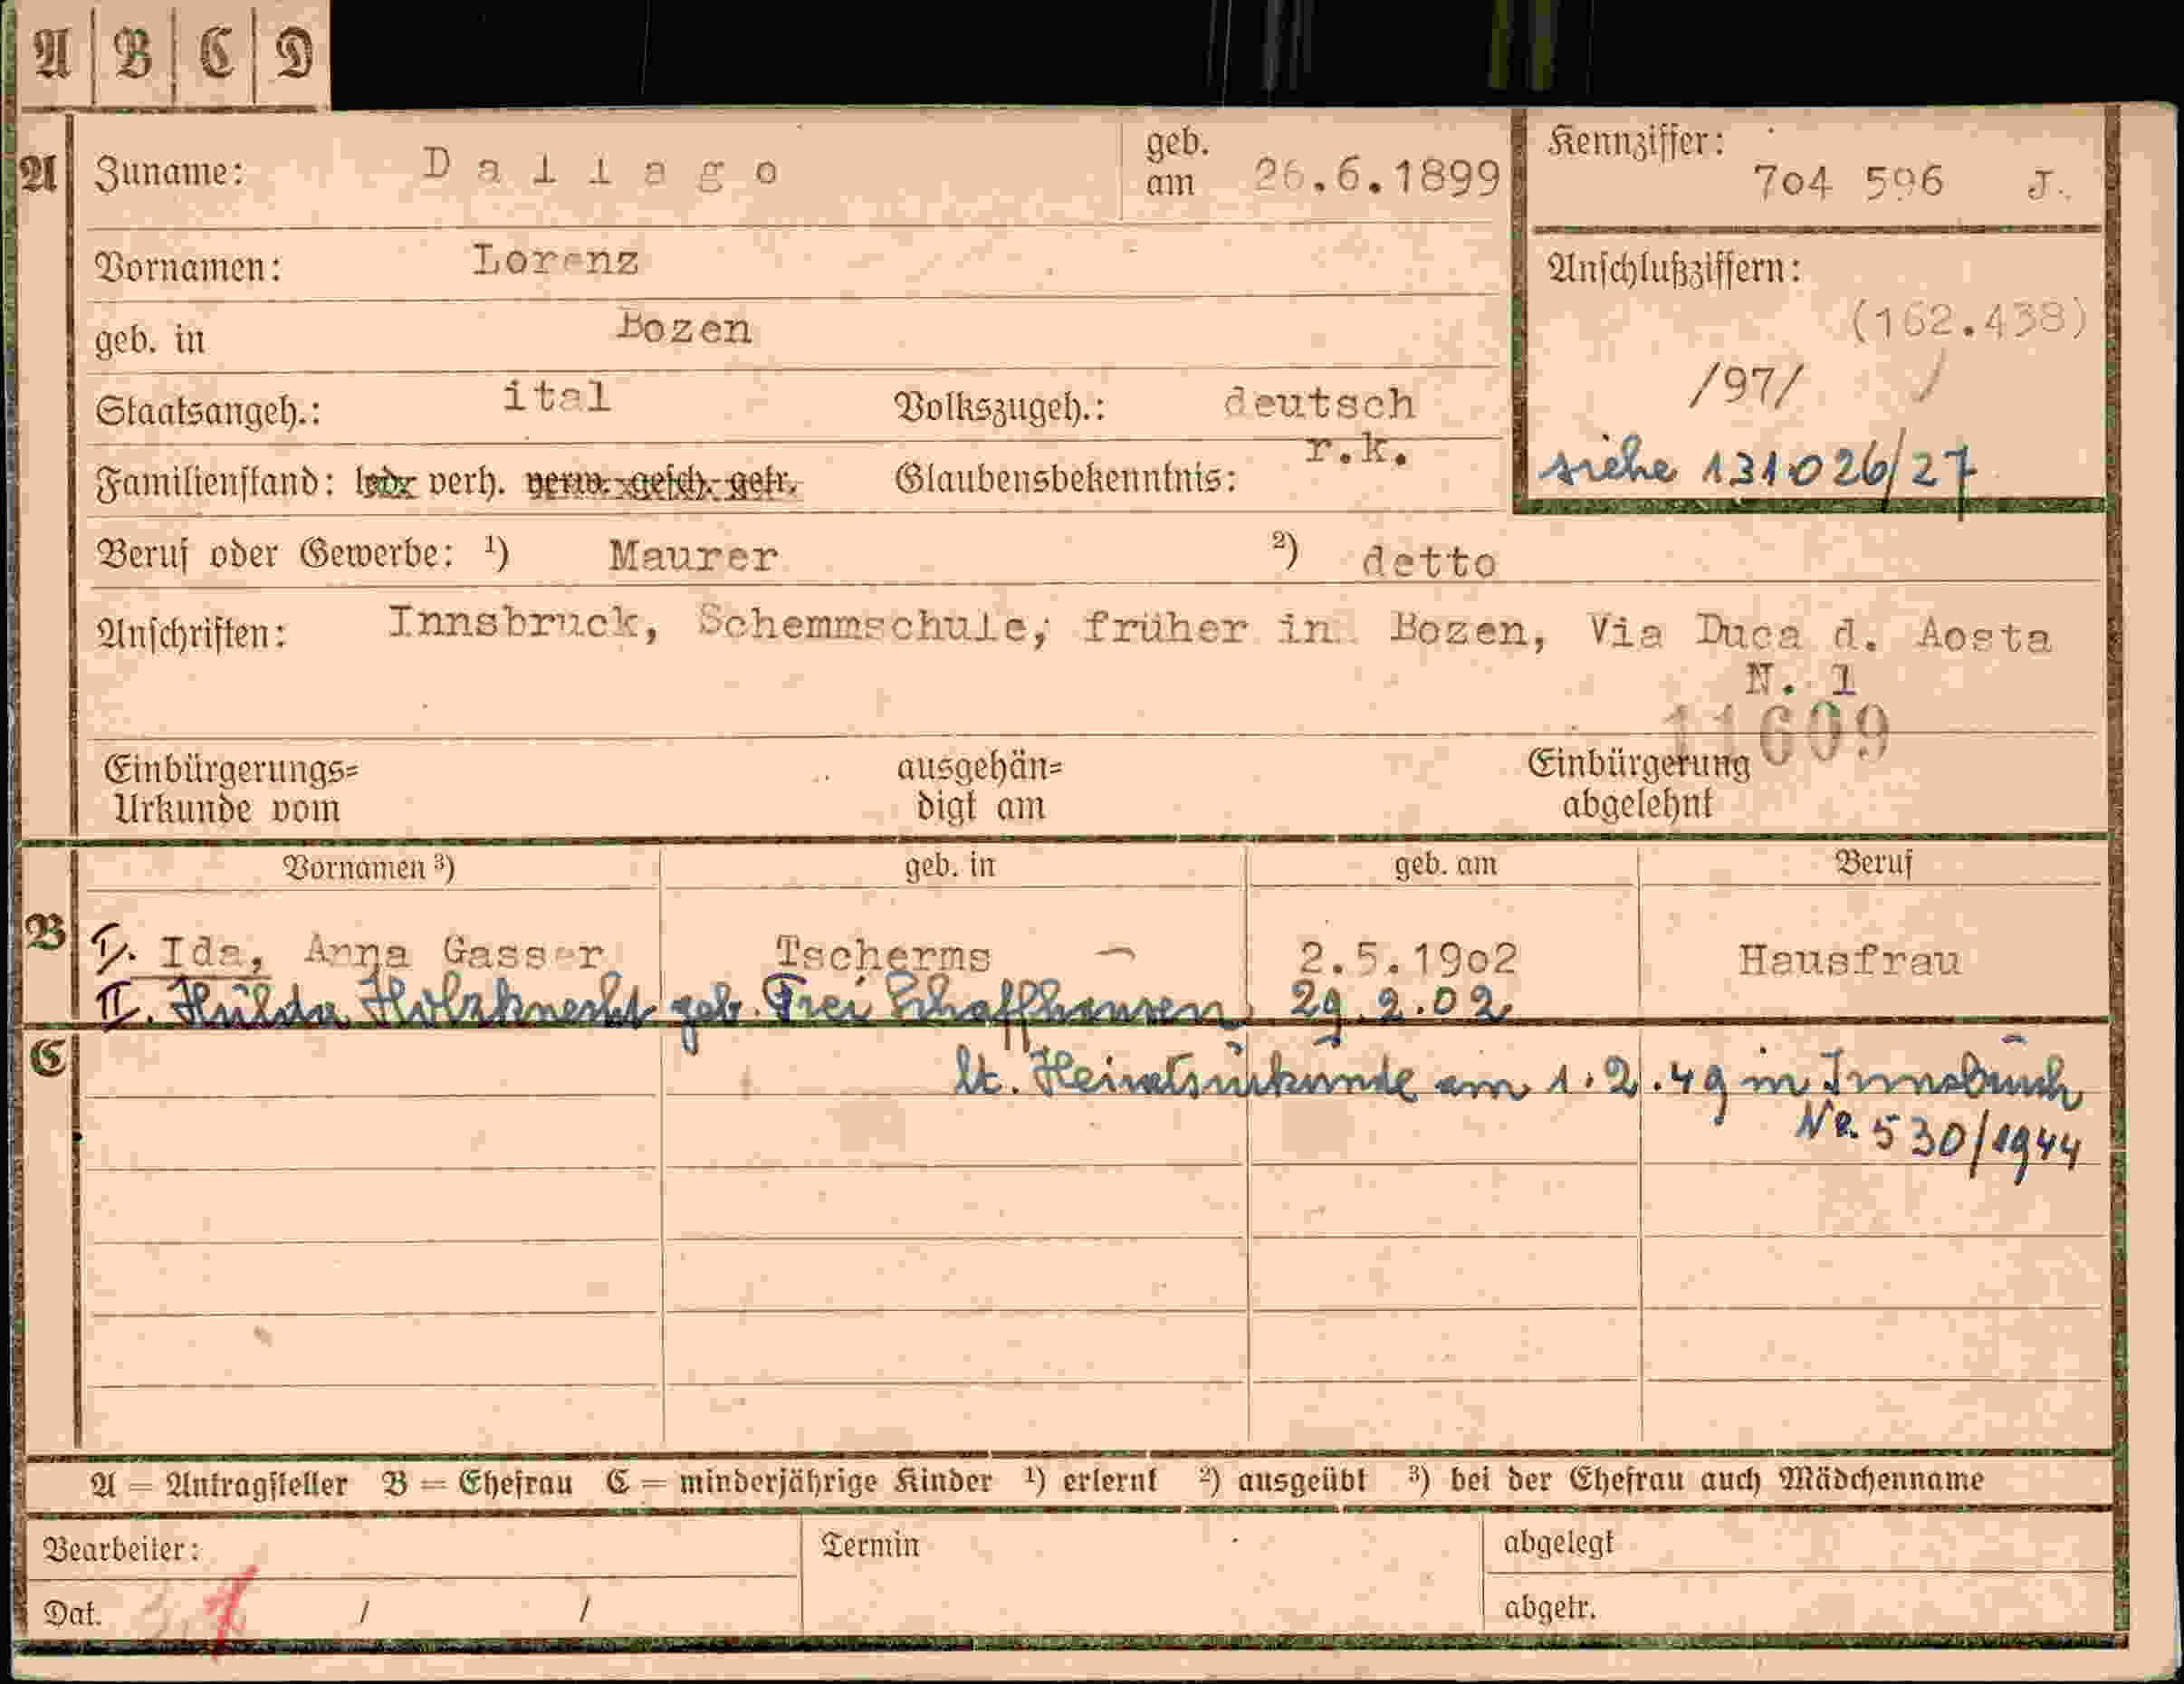 A | B | C | D
A Zuname: Dallago geb. am 26.6.1899 Kennziffer: 704 596 J.
Vornamen: Lorenz Anschlußziffern:
(162.438)
geb. in Bozen
/97/ /
Staatsangeh.: ital Volkszugeh.: deutsch
siehe 131026/27
Familienstand: led. verh. verw. gesch. getr. Glaubensbekenntnis: r.k.
Beruf oder Gewerbe: ¹) Maurer ²) detto
Anschriften: Innsbruck, Schemmschule, früher in Bozen, Via Duca d. Aosta
N. 1
11609
Einbürgerungs= ausgehän= Einbürgerung
Urkunde vom digt am abgelehnt
Vornamen ³) geb. in geb. am Beruf
B I. Ida, Anna Gasser Tscherms 2.5.1902 Hausfrau
II. Hulda Holzknecht geb. Frei Schaffhausen 29.2.02
C lt. Heiratsurkunde am 1.2.49 in Innsbruck
Nr. 530/1944
A = Antragsteller B = Ehefrau C = minderjährige Kinder ¹) erlernt ²) ausgeübt ³) bei der Ehefrau auch Mädchenname
Bearbeiter: Termin abgelegt
Dat. / / abgetr.